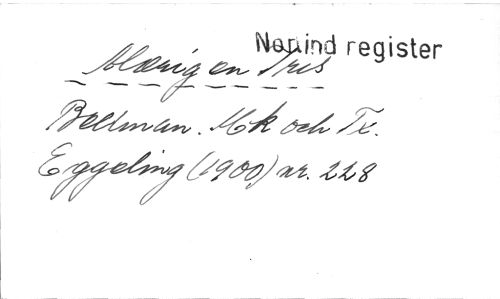 Nonind register
Aldrig en Iris
Bellman. Mk och Tx.
Eggeling (1900) nr. 228